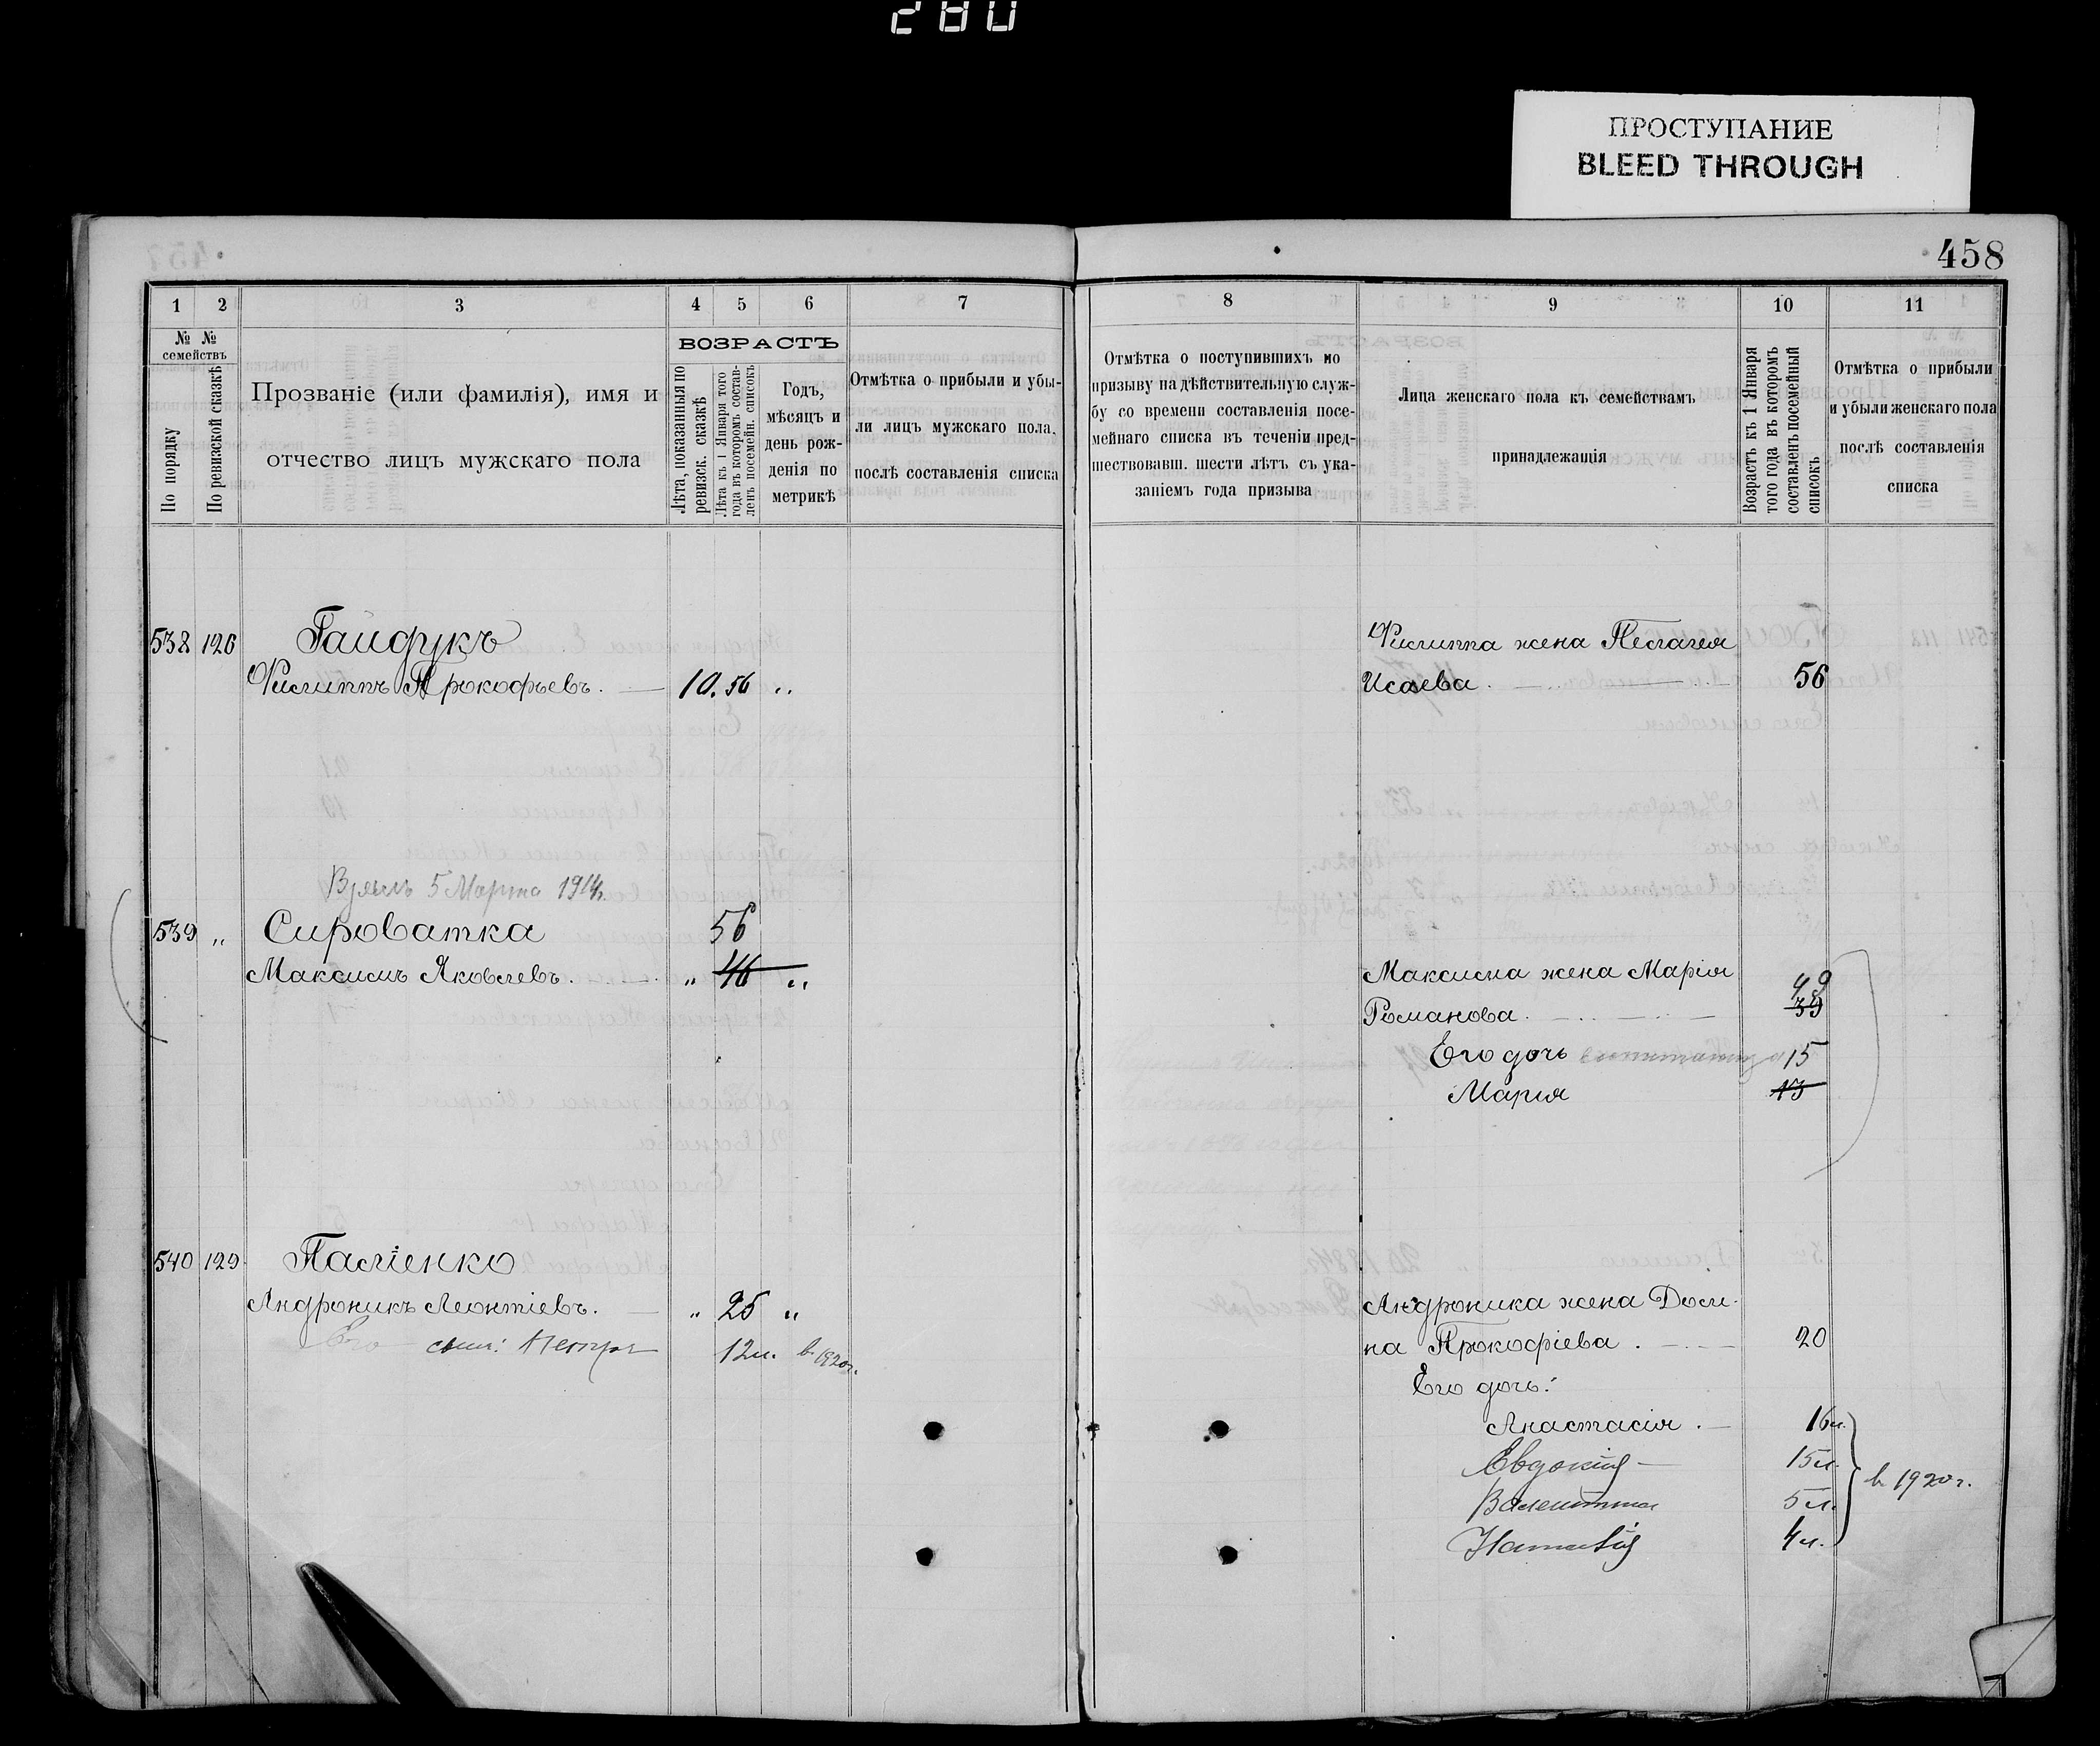 280
ПРОСТУПАНИЕ
BLEED THROUGH
458
1 2 3 4 5 6 7
№ № семействъ
По порядку
По ревизской сказкѣ
Прозваніе (или фамилія), имя и
отчество лицъ мужскаго пола
ВОЗРАСТЪ
Лѣта, показанныя по
ревизск. сказкѣ
Лѣта къ 1 Января того
года въ которомъ состав-
ленъ посемейн. списокъ
Годъ,
мѣсяцъ и
день рож-
денія по
метрикѣ
Отмѣтка о прибыли и убы-
ли лицъ мужскаго пола,
послѣ составленія списка
538 126 Гайдукъ
Филиппъ Прокофьевъ. 10. 56 „
Взялъ 5 Марта 1914г.
539 „ Сироватка 56
Максимъ Яковлевъ. „ 46 „
540 129 Паліенко
Андроникъ Леонтіевъ. „ 25 „
Его сынъ: Петръ 12л. в 1920г.
8 9 10 11
Отмѣтка о поступившихъ по
призыву на дѣйствительную служ-
бу со времени составленія посе-
мейнаго списка въ теченіи пред-
шествовавш. шести лѣтъ съ ука-
заніемъ года призыва
Лица женскаго пола къ семействамъ
принадлежащія
Возрастъ къ 1 Января
того года въ которомъ
составленъ посемейный
списокъ
Отмѣтка о прибыли
и убыли женскаго пола
послѣ составленія
списка
Филиппа жена Пелагея
Исаева. 56
Максима жена Марія 49
Романова. 39
Его дочь 15
Марія 13
Андроника жена Дом-
на Прокофіева. 20
Его дочь:
Анастасія. 16л.
Евдокія 15л.
в 1920г.
Валентина 5л.
Наталія 4л.